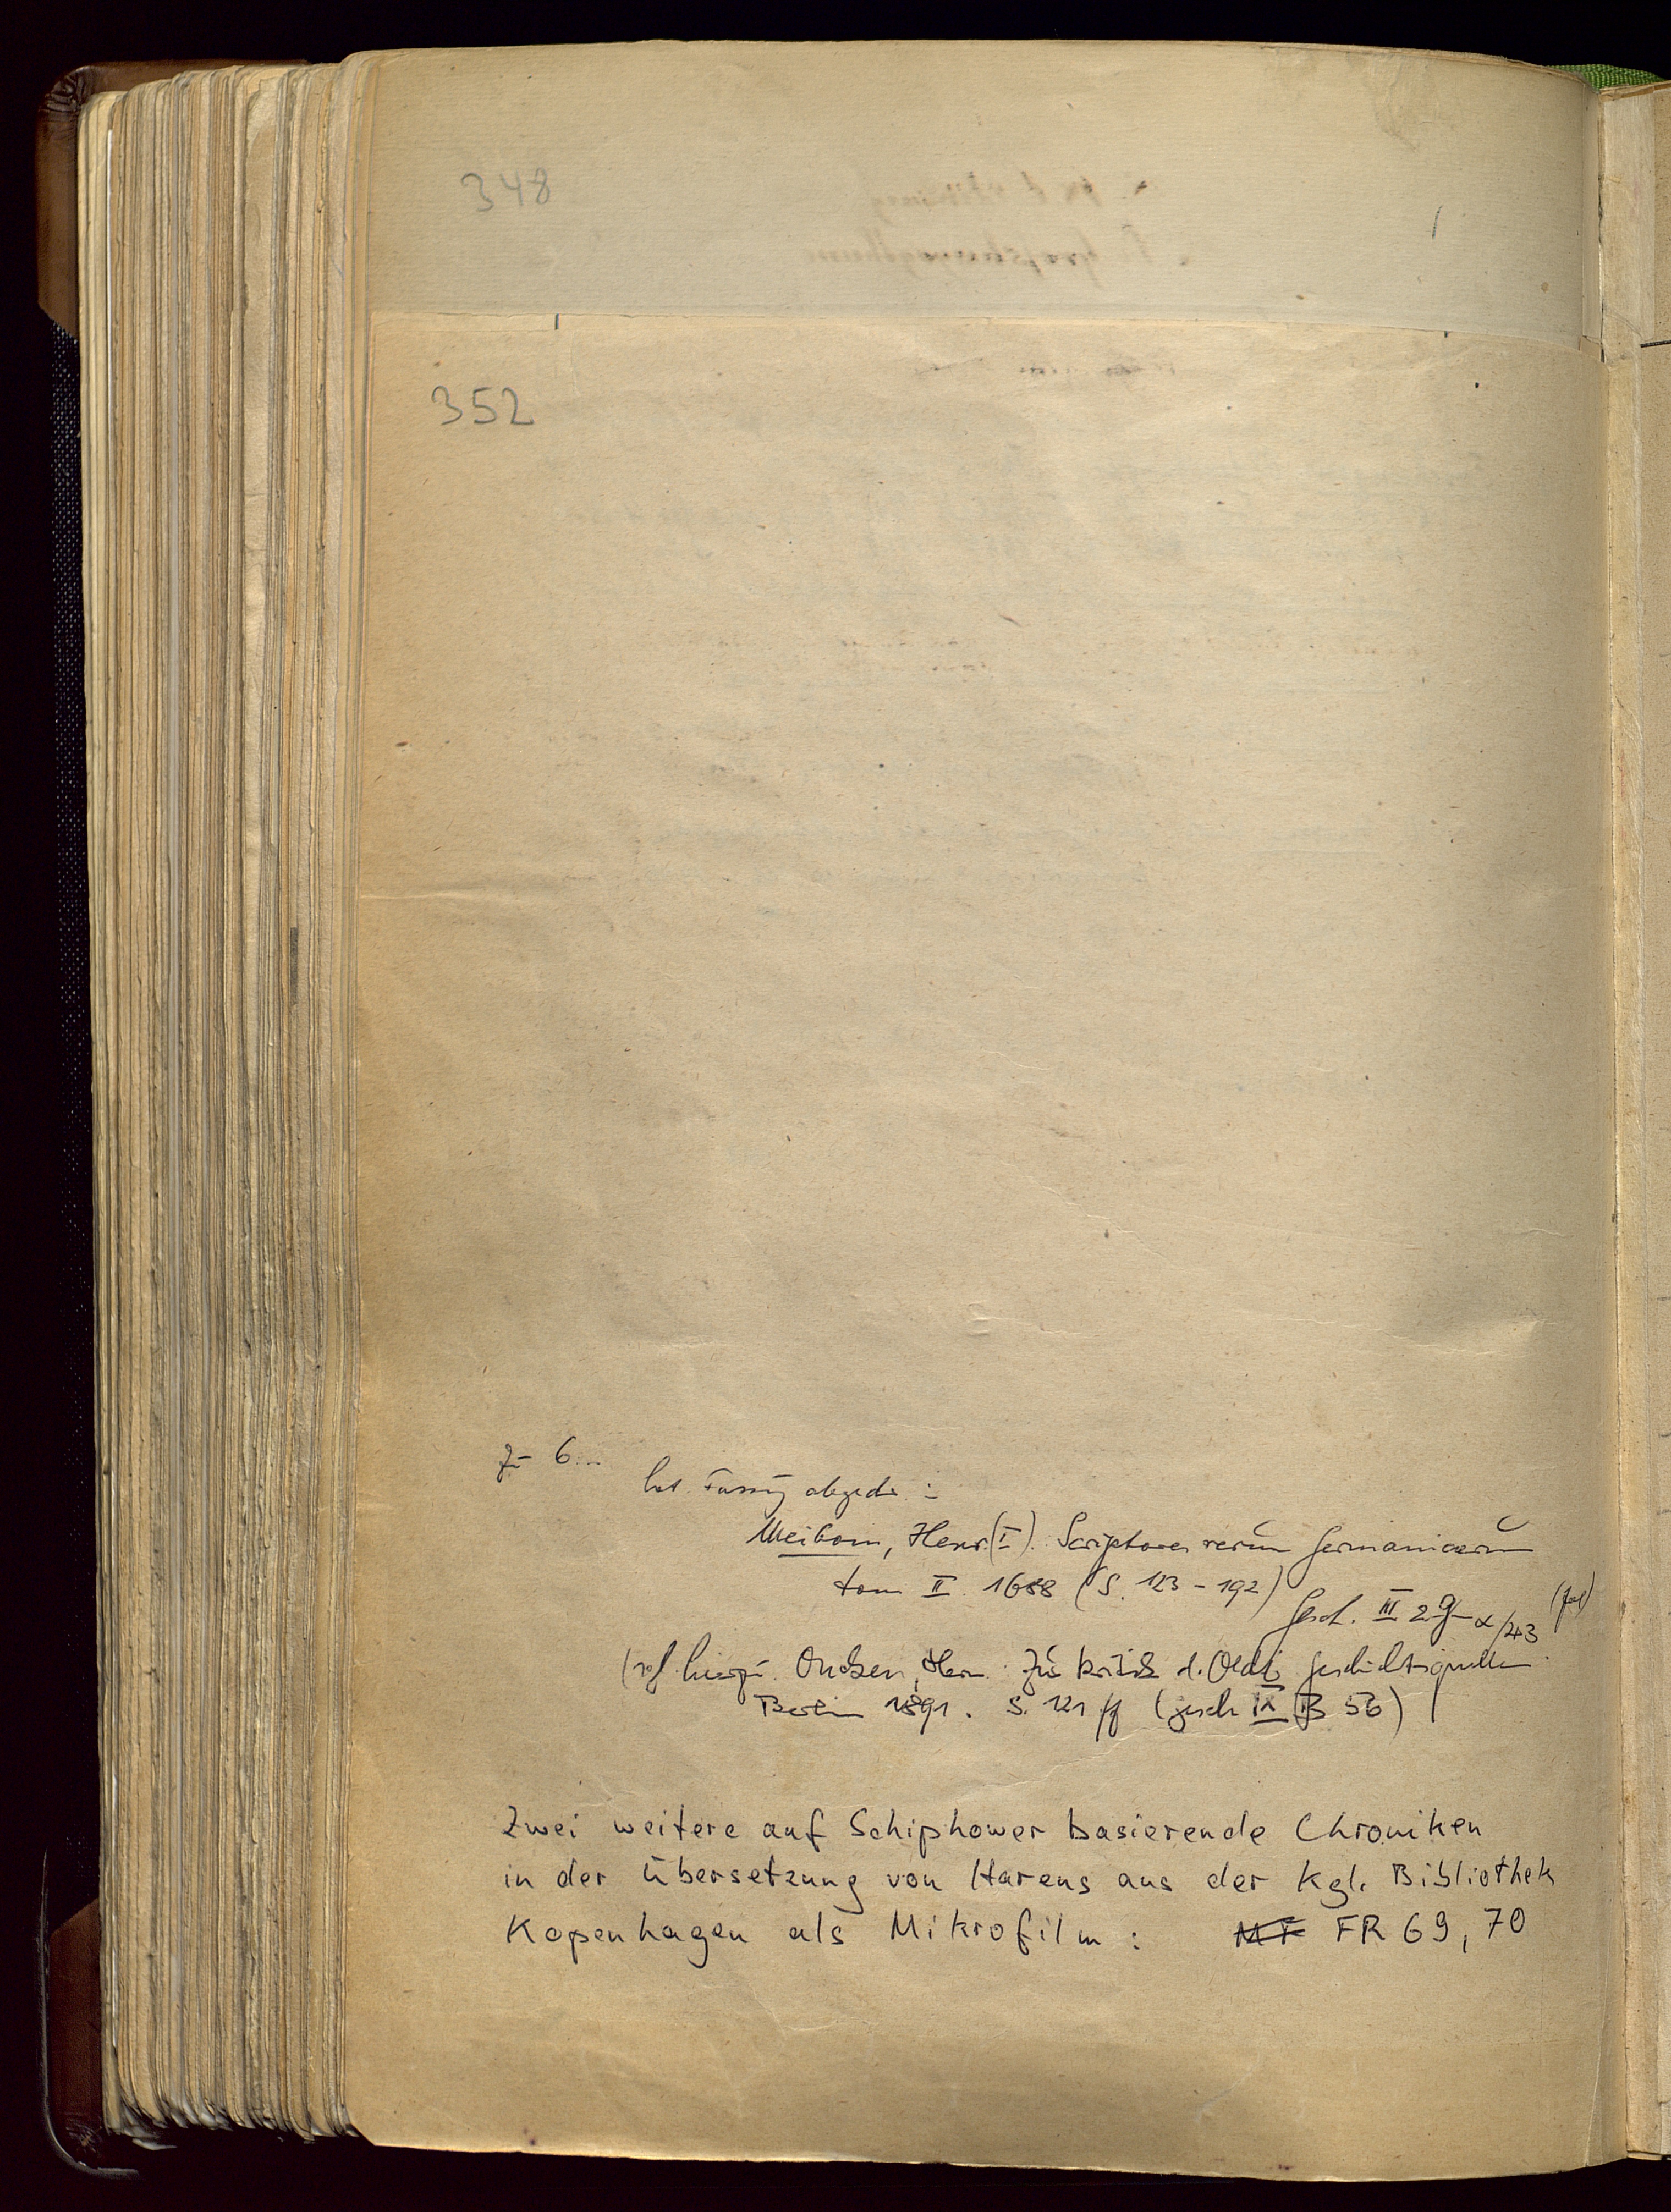 348
352
Zu 6...
lat. Fassung abgedr.:
Meibom, Henr. (I). Scriptores rerum Germanicarum
tom II. 1688 (S. 123-192)
Gesch. III 2 g α/43 (fol)
(vgl. hierzu Oncken, Herm. Zur Kritik d. Oldb. Geschichtsquellen.
Berlin 1891. S. 121 ff (Gesch IX B 56)
Zwei weitere auf Schiphower basierende Chroniken
in der Übersetzung von Harens aus der Kgl. Bibliothek
Kopenhagen als Mikrofilm: MF FR 69, 70